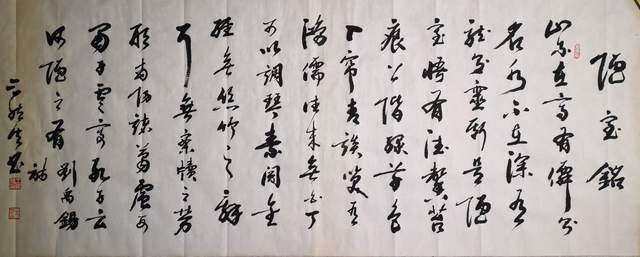 陋室銘
山不在高有僊則
名水不在深有
龍則靈斯是陋
室惟吾德馨苔
痕上階綠草色
入簾青談笑有
鴻儒往來無白丁
可以調琴素閱金
經無絲竹之亂
耳無案牘之勞
形南陽諸葛廬西
蜀子雲亭孔子云
何陋之有
劉禹錫